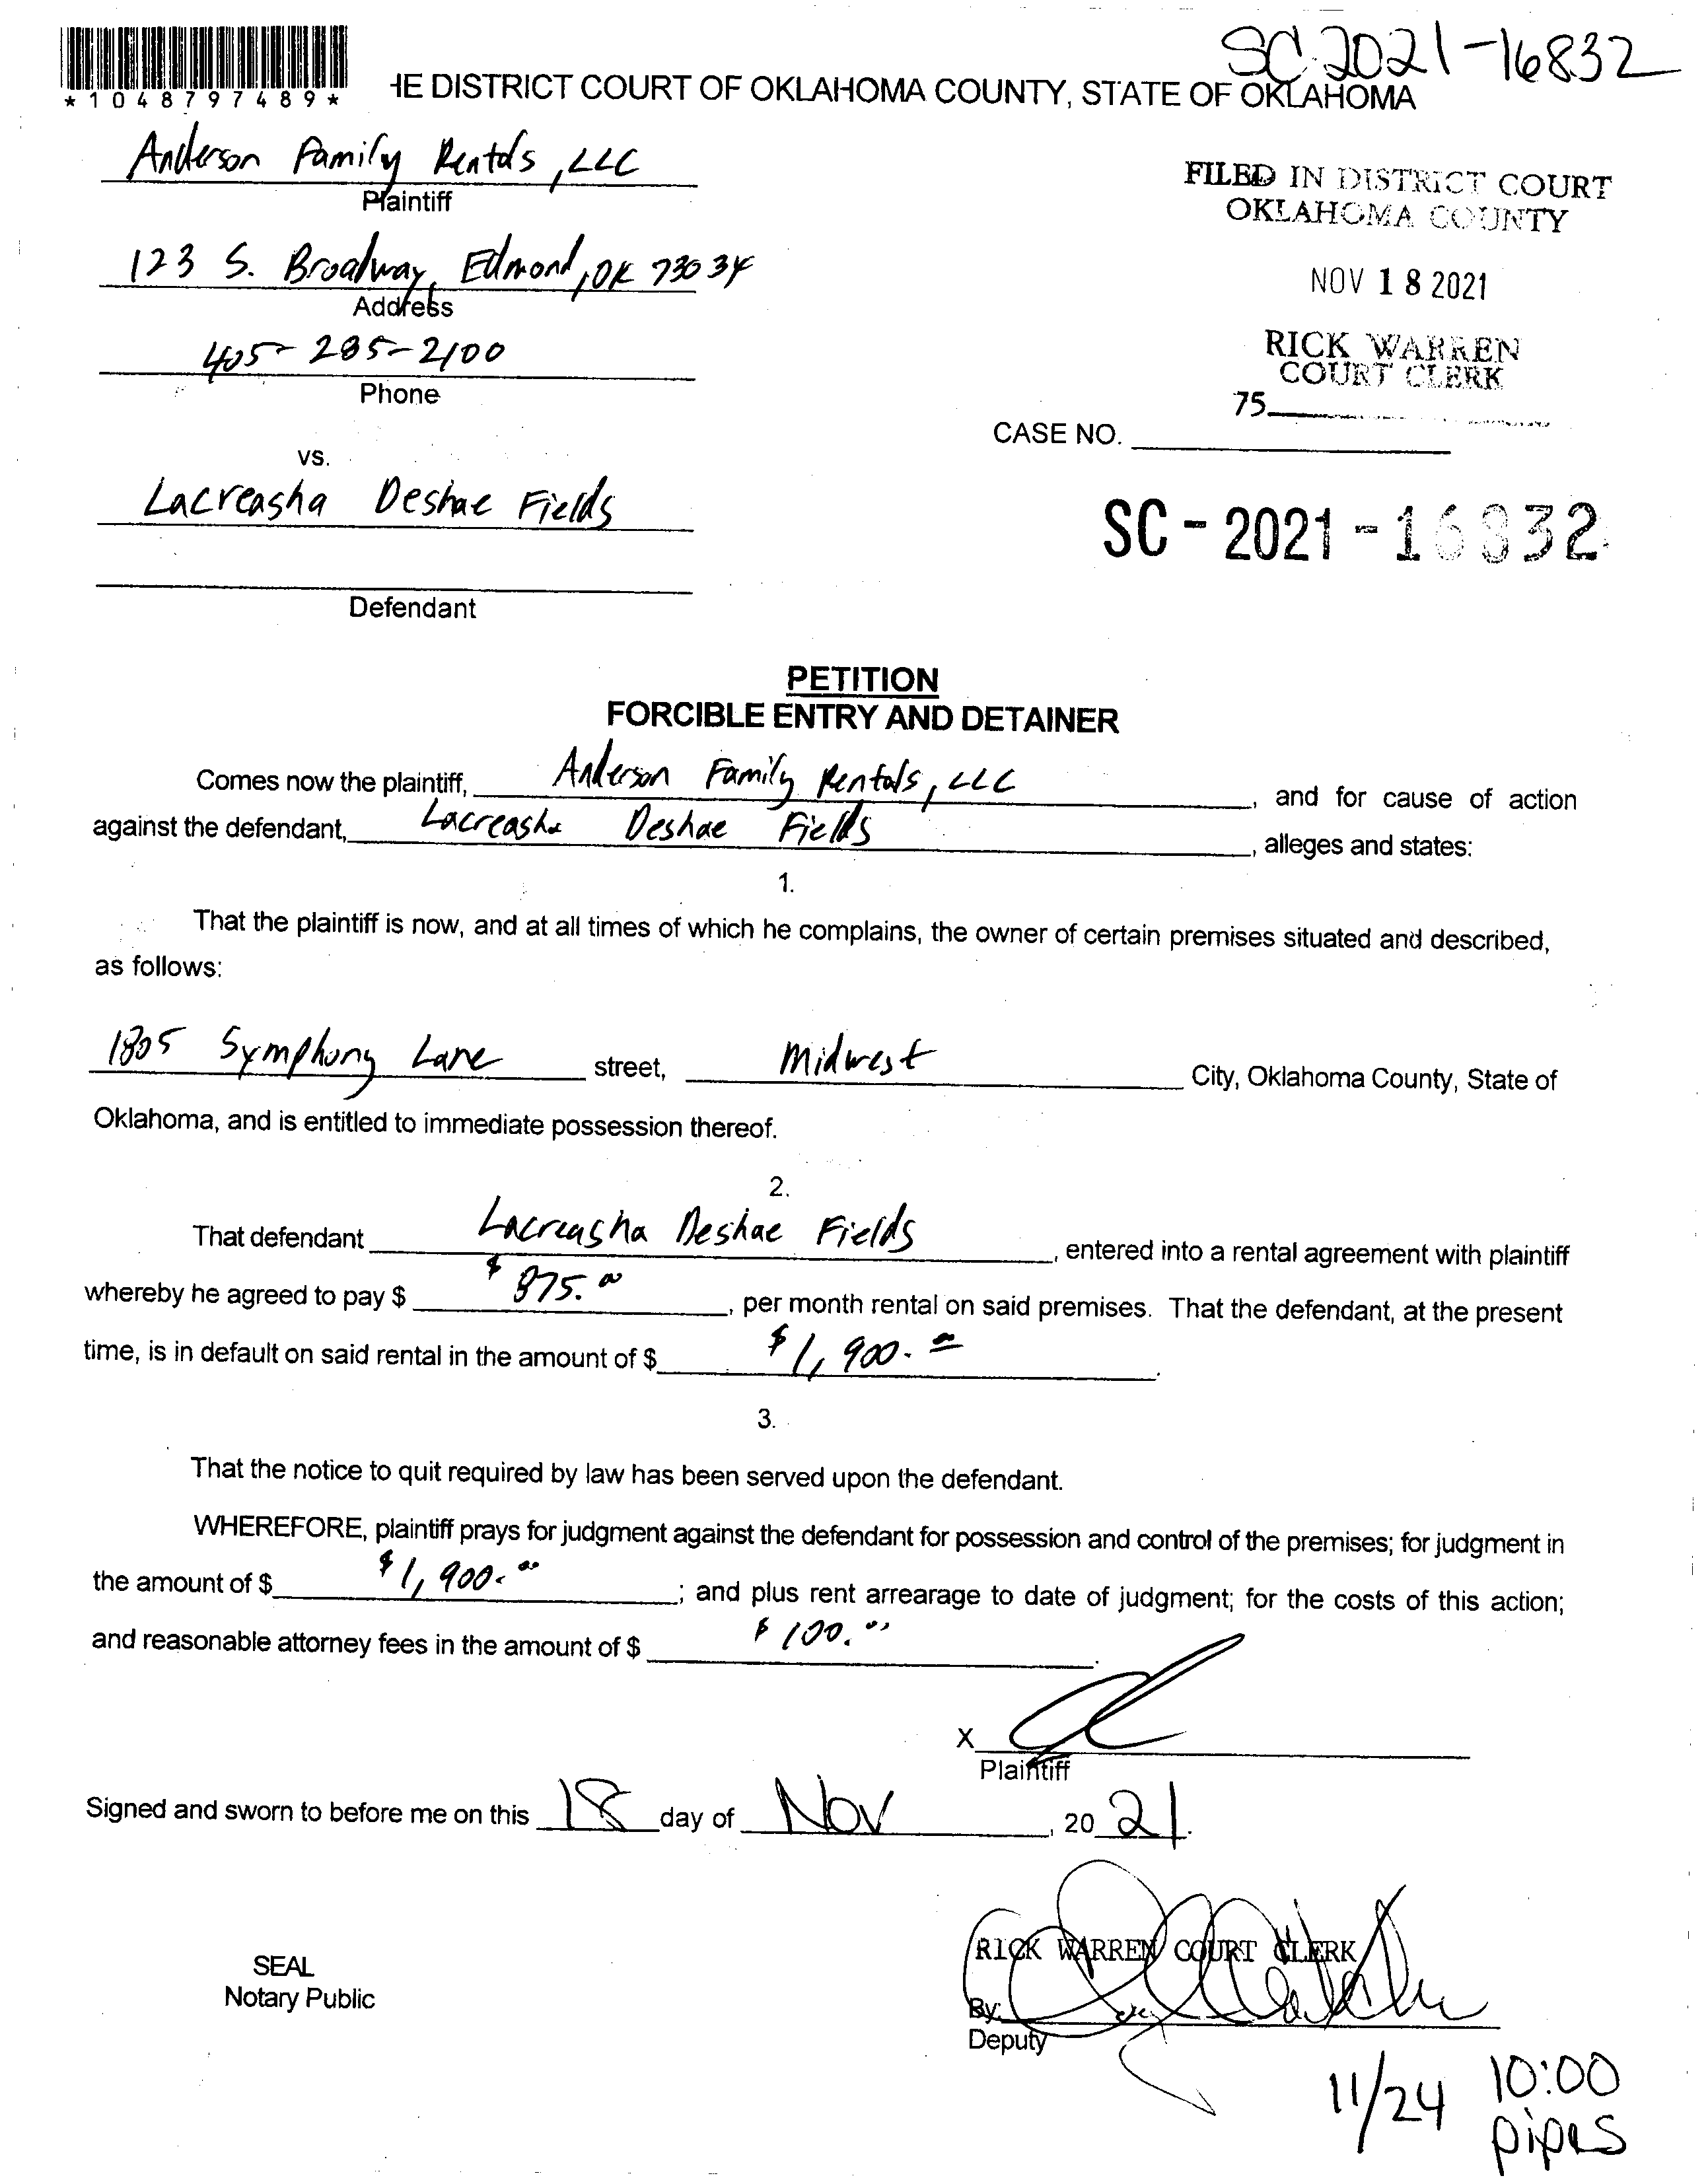 SC 2021-16832
*1048797489*
HE DISTRICT COURT OF OKLAHOMA COUNTY, STATE OF OKLAHOMA
Anderson Family Rentals, LLC
Plaintiff
FILED IN DISTRICT COURT
OKLAHOMA COUNTY
123 S. Broadway, Edmond, OK 73034
Address
NOV 18 2021
405-285-2100
Phone
RICK WARREN
COURT CLERK
75
CASE NO.
vs.
Lacreasha Deshae Fields
SC-2021-16832
Defendant
PETITION
FORCIBLE ENTRY AND DETAINER
Comes now the plaintiff, Anderson Family Rentals, LLC, and for cause of action
against the defendant, Lacreasha Deshae Fields, alleges and states:
1.
That the plaintiff is now, and at all times of which he complains, the owner of certain premises situated and described,
as follows:
1805 Symphony Lane street, Midwest City, Oklahoma County, State of
Oklahoma, and is entitled to immediate possession thereof.
2.
That defendant Lacreasha Deshae Fields, entered into a rental agreement with plaintiff
whereby he agreed to pay $ $875.00, per month rental on said premises. That the defendant, at the present
time, is in default on said rental in the amount of $ $1,900.00.
3.
That the notice to quit required by law has been served upon the defendant.
WHEREFORE, plaintiff prays for judgment against the defendant for possession and control of the premises; for judgment in
the amount of $ $1,900.00; and plus rent arrearage to date of judgment; for the costs of this action;
and reasonable attorney fees in the amount of $ $100.00.
X
Plaintiff
Signed and sworn to before me on this 18 day of Nov, 2021.
RICK WARREN COURT CLERK
SEAL
Notary Public
By:
Deputy
11/24 10:00
pipes